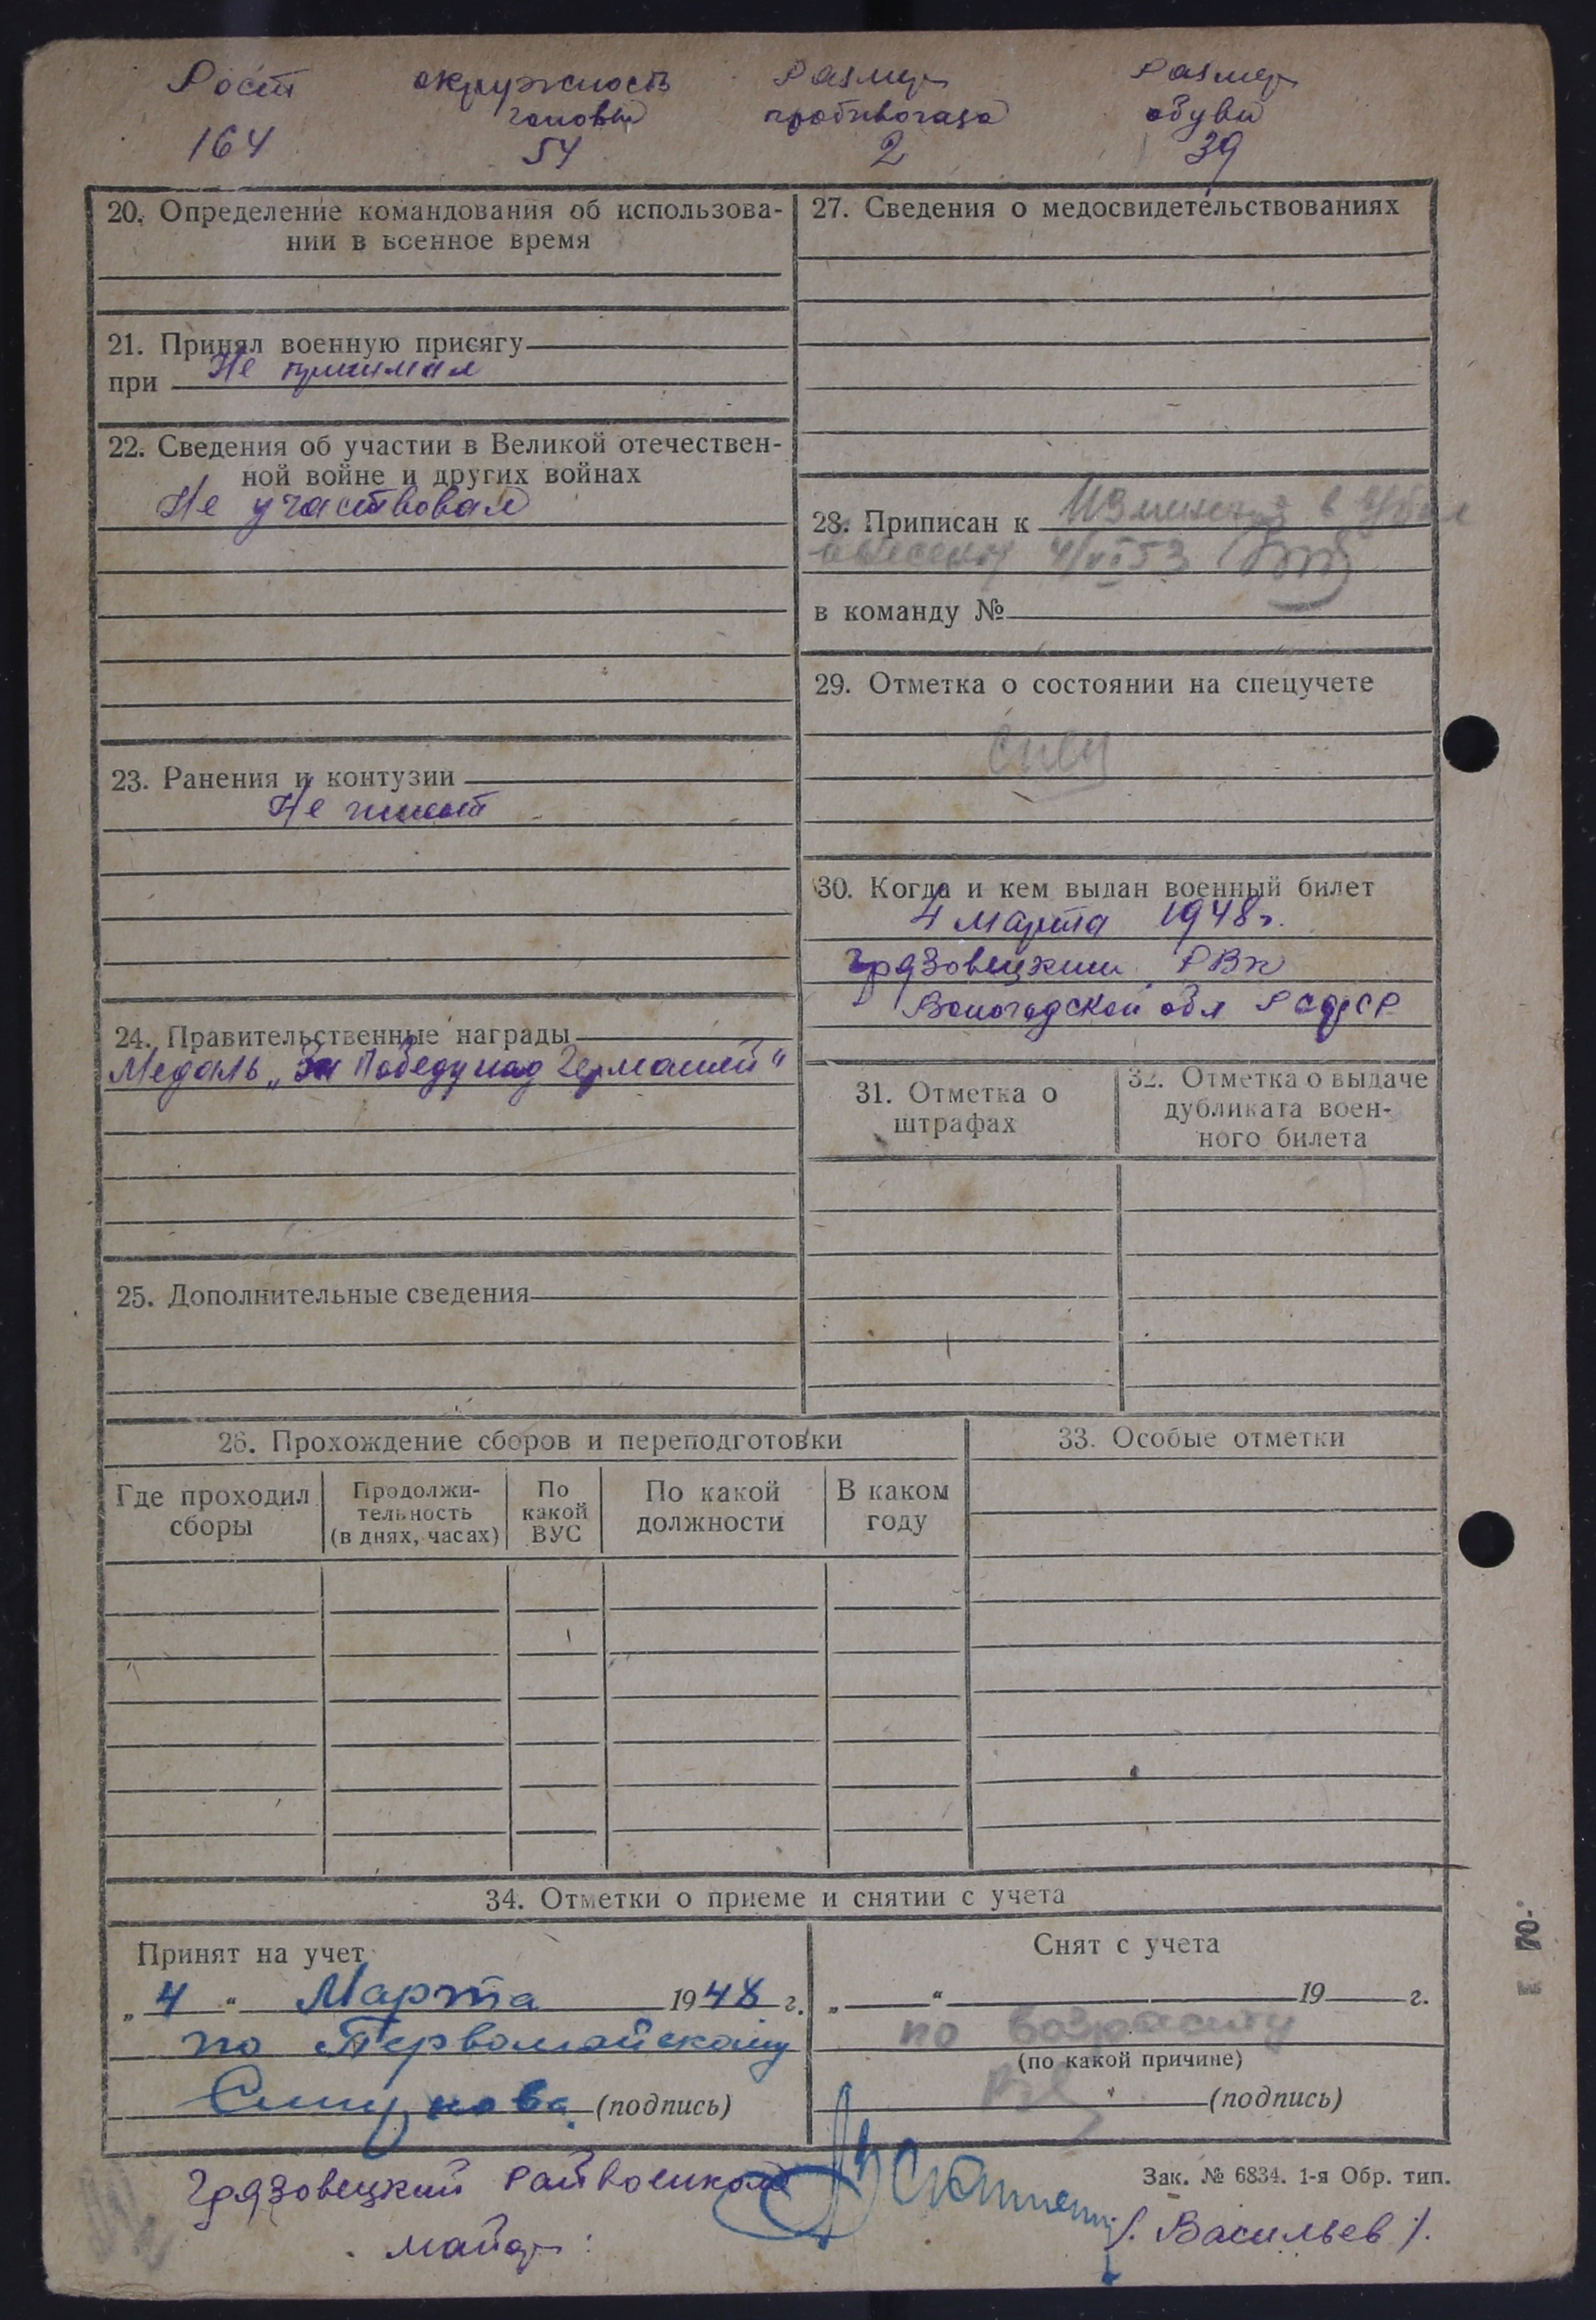 Рост окружность Размер Размер
головы противогаза обуви
164 54 2 39
20. Определение командования об использова-
нии в военное время
21. Принял военную присягу
при Не принимал
22. Сведения об участии в Великой отечествен-
ной войне и других войнах
Не участвовал
23. Ранения и контузии
Не имеет
24. Правительственные награды
Медаль „За Победу над Германией“
25. Дополнительные сведения
27. Сведения о медосвидетельствованиях
28. Приписан к
4/VI 53
в команду №
29. Отметка о состоянии на спецучете
30. Когда и кем выдан военный билет
4 марта 1948 г.
Грязовецким РВК
Вологодской обл РСФСР
31. Отметка о
штрафах
32. Отметка о выдаче
дубликата воен-
ного билета
26. Прохождение сборов и переподготовки
Где проходил
сборы
Продолжи-
тельность
(в днях, часах)
По
какой
ВУС
По какой
должности
В каком
году
33. Особые отметки
34. Отметки о приеме и снятии с учета
Принят на учет
„ 4 “ Марта 1948 г.
по Первомайскому
(подпись)
Снят с учета
„ “ 19 г.
по возрасту
(по какой причине)
(подпись)
Зак. № 6834. 1-я Обр. тип.
Грязовецкий Райвоенком
майор: /. Васильев /.